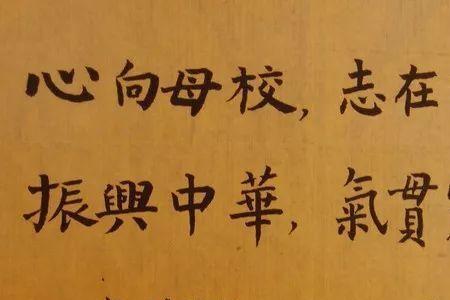 心向母校，志在
振興中華，氣貫